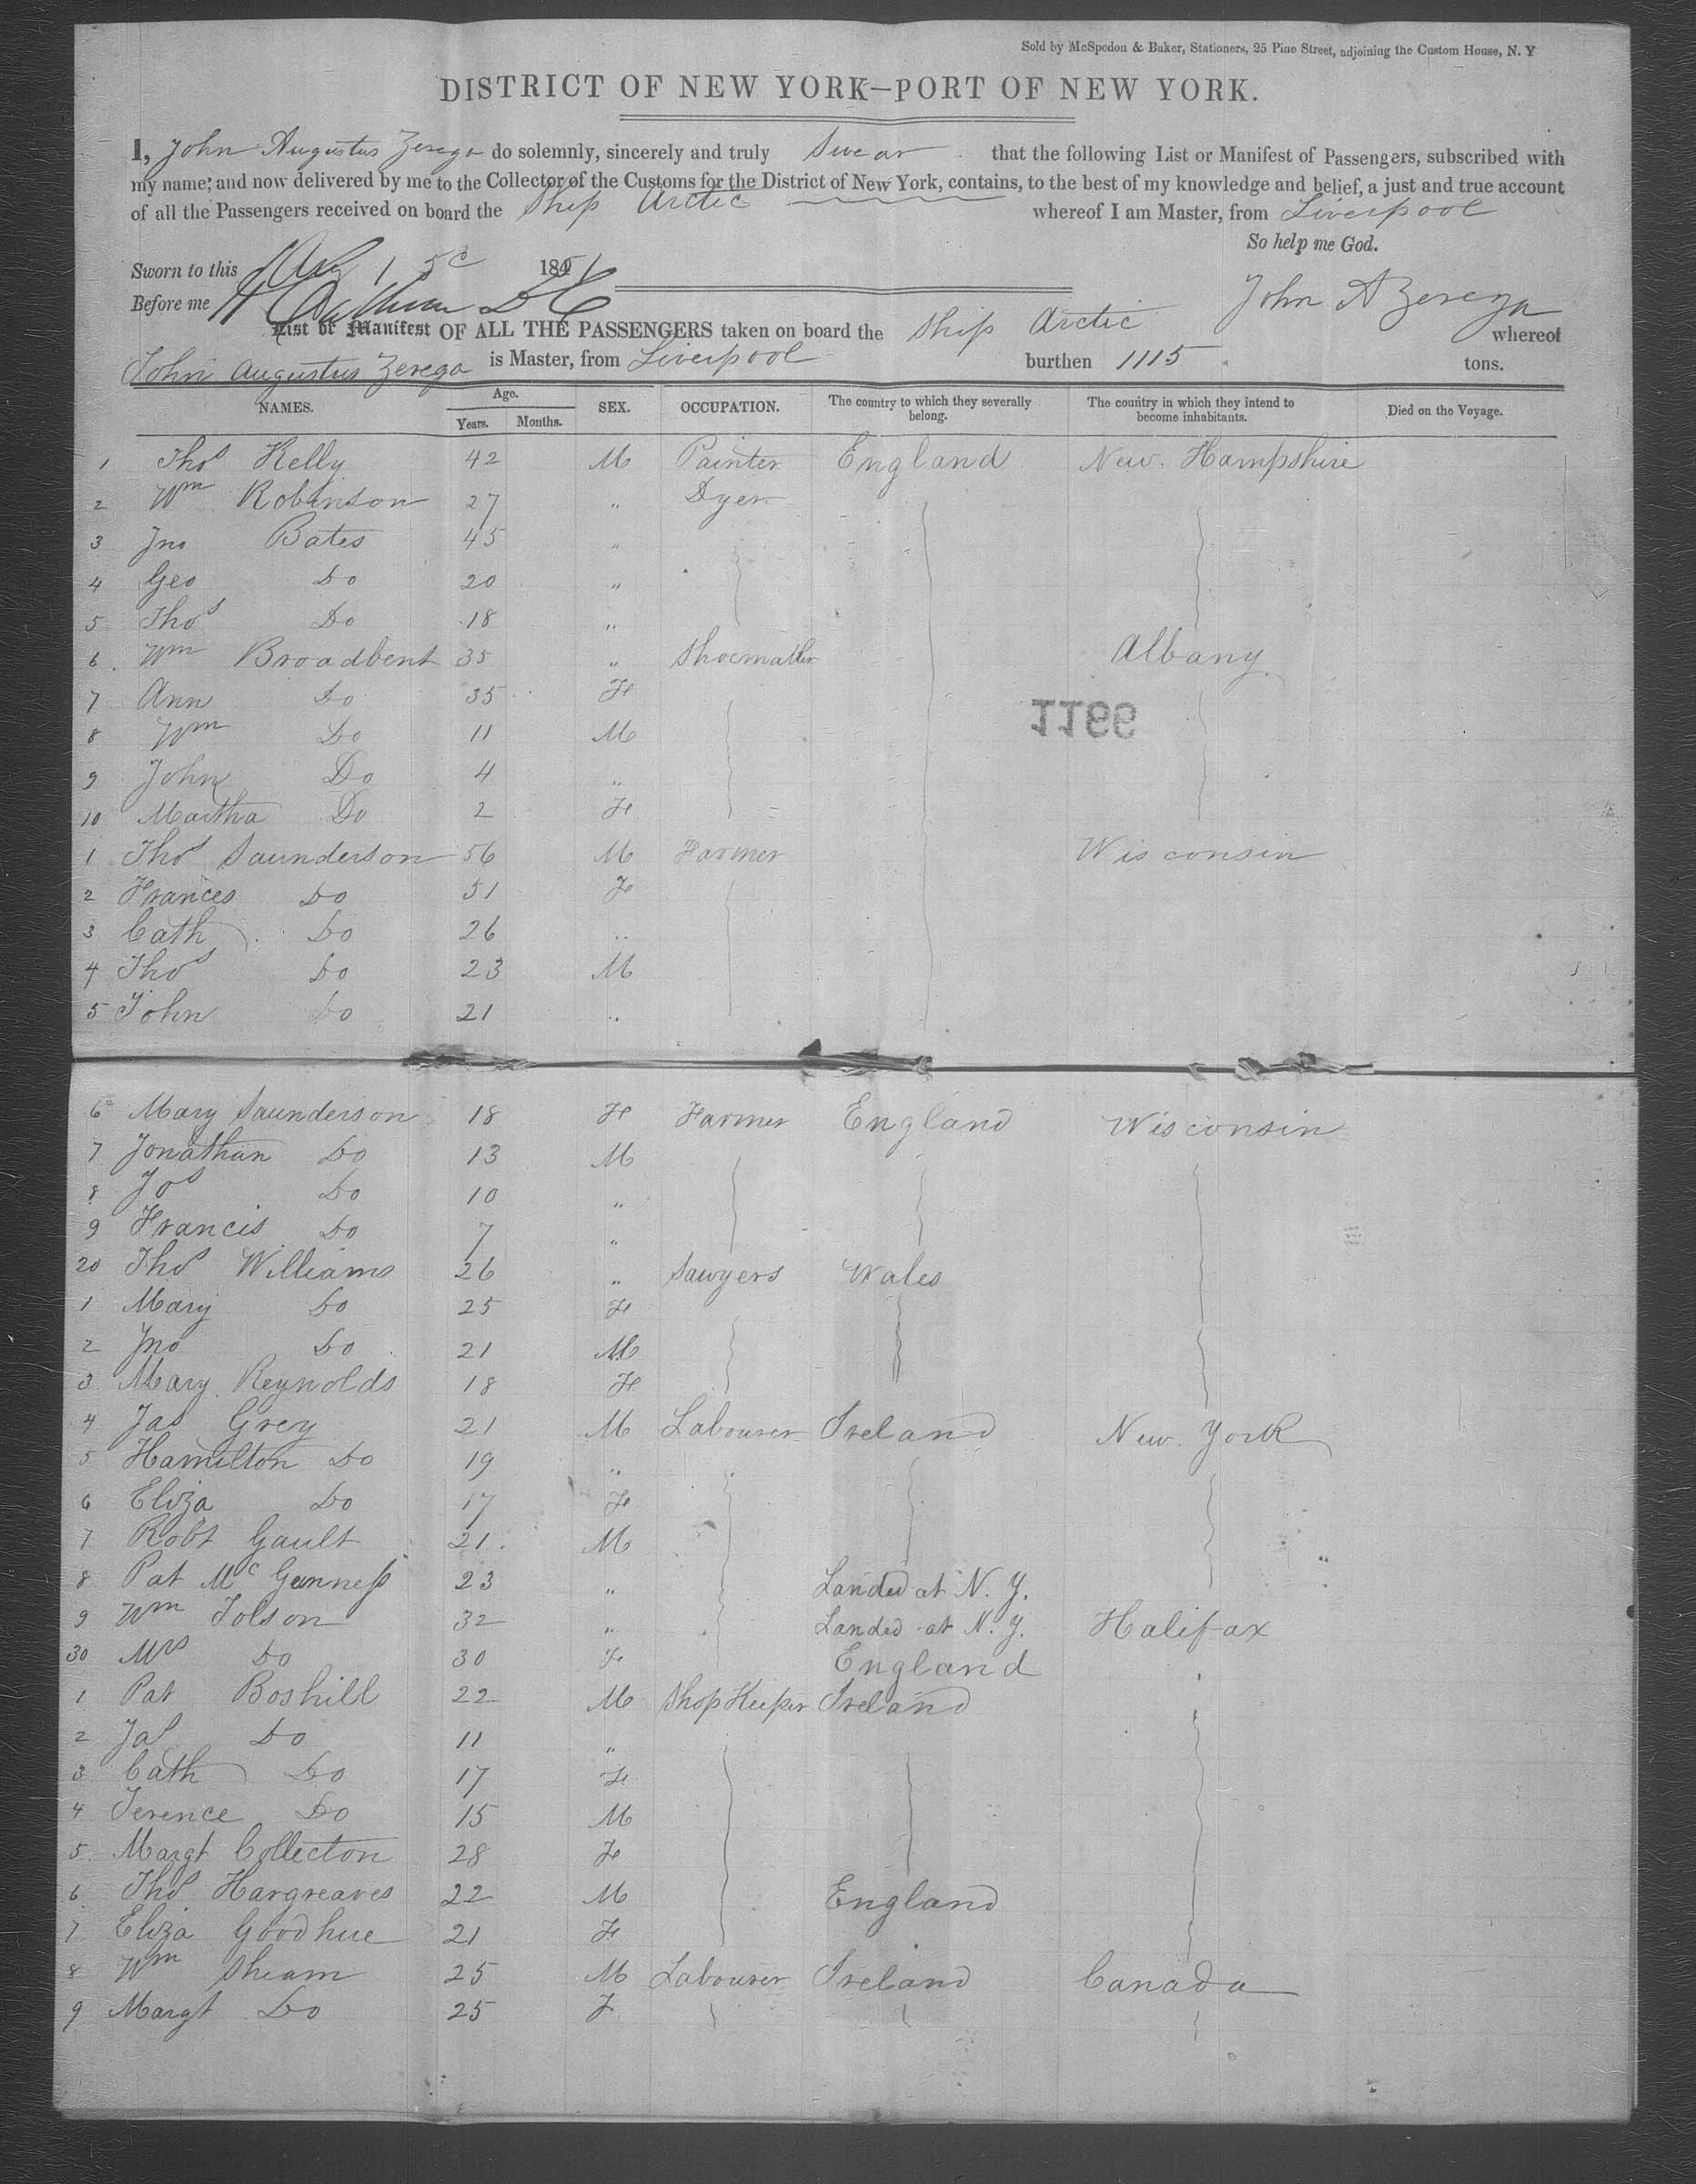 Sold by McSpedon & Baker, Stationers, 25 Pine Street, adjoining the Custom House, N. Y
DISTRICT OF NEW YORK—PORT OF NEW YORK.
I, John Augustus Zerega do solemnly, sincerely and truly Swear that the following List or Manifest of Passengers, subscribed with
my name, and now delivered by me to the Collector of the Customs for the District of New York, contains, to the best of my knowledge and belief, a just and true account
of all the Passengers received on board the Ship Arctic whereof I am Master, from Liverpool
So help me God.
Sworn to this 185
Before me
John A Zerega
List or Manifest OF ALL THE PASSENGERS taken on board the Ship Arctic whereof
John Augustus Zerega is Master, from Liverpool burthen 1115 tons.
NAMES. Age. Years. Months. SEX. OCCUPATION. The country to which they severally belong. The country in which they intend to become inhabitants. Died on the Voyage.
1 Thos Kelly 42 M Painter England New Hampshire
2 Wm Robinson 27 " Dyer
3 Jno Bates 45 "
4 Geo Do 20 "
5 Thos Do 18 "
6 Wm Broadbent 35 " Shoemaker Albany
7 Ann Do 35 F
1166
8 Wm Do 11 M
9 John Do 4 "
10 Martha Do 2 F
1 Thos Saunderson 56 M Farmer Wisconsin
2 Frances Do 51 F
3 Cath Do 26 "
4 Thos Do 23 M
5 John Do 21 "
6 Mary Saunderson 18 F Farmer England Wisconsin
7 Jonathan Do 13 M
8 Jos Do 10 "
9 Francis Do 7 "
20 Thos Williams 26 " Sawyers Wales
1 Mary Do 25 F
2 Jno Do 21 M
3 Mary Reynolds 18 F
4 Jas Grey 21 M Labourer Ireland New York
5 Hamilton Do 19 "
6 Eliza Do 17 F
7 Robt Gault 21 M
8 Pat Mc Genness 23 " Landed at N. Y.
9 Wm Tolson 32 " Landed at N. Y. Halifax
30 Mrs Do 30 F England
1 Pat Boshill 22 M Shop Keeper Ireland
2 Jas Do 11 "
3 Cath Do 17 F
4 Terence Do 15 M
5 Margt Collecton 28 F
6 Thos Hargreaves 22 M England
7 Eliza Goodhue 21 F
8 Wm Sheam 25 M Labourer Ireland Canada
9 Margt Do 25 F